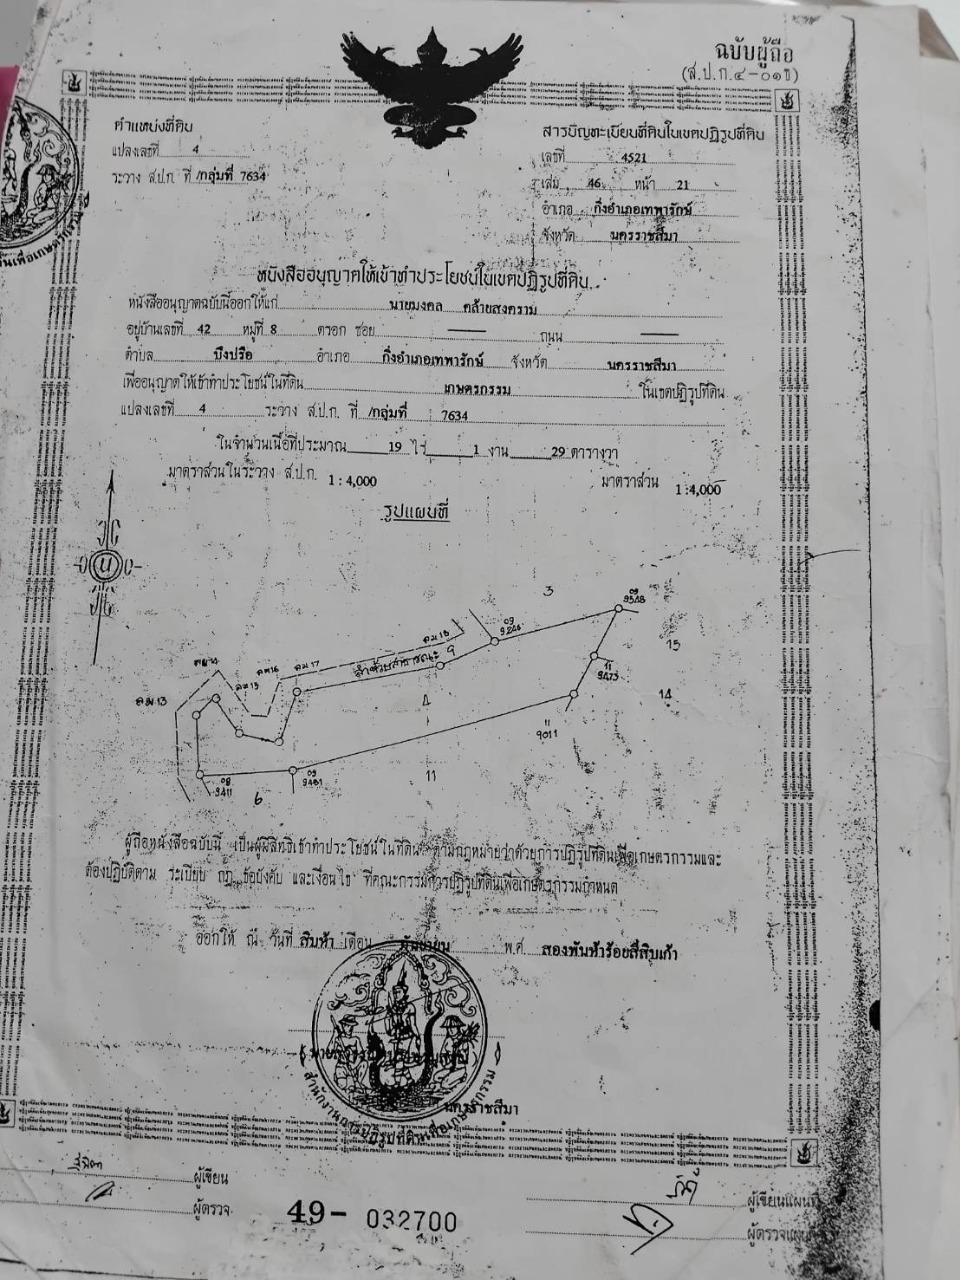 ฉบับผู้ถือ
(ส.ป.ก.๔-๐๑ข)
ตำแหน่งที่ดิน
แปลงเลขที่ 4
ระวาง ส.ป.ก. ที่ /กลุ่มที่ 7634
สารบัญทะเบียนที่ดินในเขตปฏิรูปที่ดิน
เลขที่ 4521
เล่ม 46 หน้า 21
อำเภอ กิ่งอำเภอเทพารักษ์
จังหวัด นครราชสีมา
หนังสืออนุญาตให้เข้าทำประโยชน์ในเขตปฏิรูปที่ดิน
หนังสืออนุญาตฉบับนี้ออกให้แก่ นายมงคล คล้ายสงคราม
อยู่บ้านเลขที่ 42 หมู่ที่ 8 ตรอก ซอย — ถนน —
ตำบล บึงปรือ อำเภอ กิ่งอำเภอเทพารักษ์ จังหวัด นครราชสีมา
เพื่ออนุญาตให้เข้าทำประโยชน์ในที่ดิน เกษตรกรรม ในเขตปฏิรูปที่ดิน
แปลงเลขที่ 4 ระวาง ส.ป.ก. ที่ /กลุ่มที่ 7634
ในจำนวนเนื้อที่ประมาณ 19 ไร่ 1 งาน 29 ตารางวา
มาตราส่วนในระวาง ส.ป.ก. 1 : 4,000 มาตราส่วน 1:4,000
รูปแผนที่
น
3
09
9548
คม 18
09
15
คม 17
ลำห้วยสาธารณะ 9
คม 16
คม 15
11
9473
14
คม.13
4
11
9011
11
08
9411
6
09
ผู้ถือหนังสือฉบับนี้ เป็นผู้มีสิทธิเข้าทำประโยชน์ในที่ดิน ตามกฎหมายว่าด้วยการปฏิรูปที่ดินเพื่อเกษตรกรรมและ
ต้องปฏิบัติตาม ระเบียบ กฎ ข้อบังคับ และเงื่อนไข ที่คณะกรรมการปฏิรูปที่ดินเพื่อเกษตรกรรมกำหนด
ออกให้ ณ วันที่ สิบห้า เดือน กันยายน พ.ศ. สองพันห้าร้อยสี่สิบเก้า
สำนักงานการปฏิรูปที่ดินเพื่อเกษตรกรรม
นครราชสีมา
ผู้เขียน
ผู้ตรวจ
49- 032700
ผู้เขียนแผนที่
ผู้ตรวจแผนที่